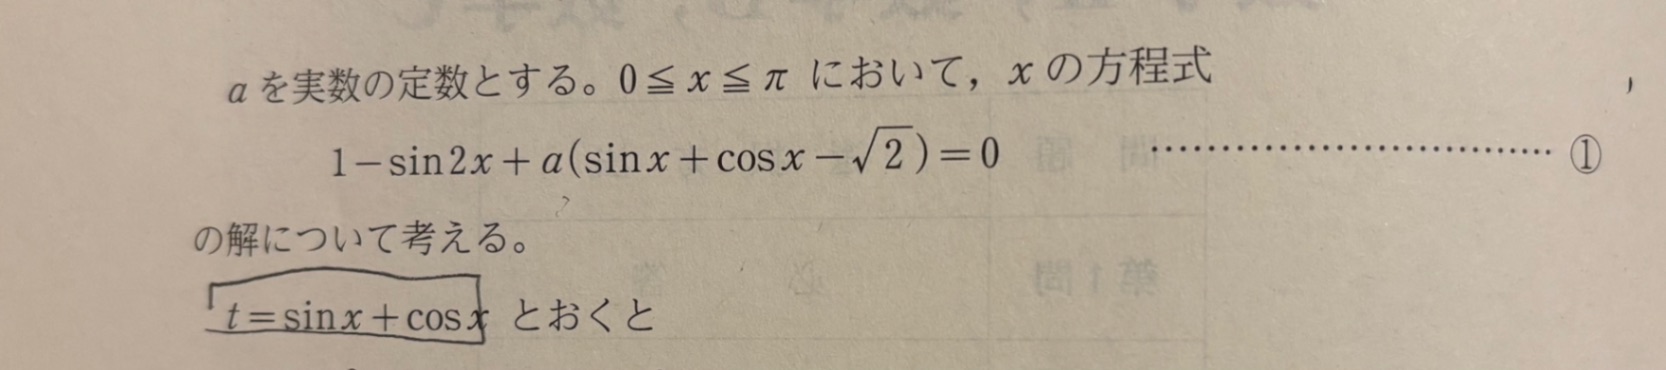 aを実数の定数とする。0≦x≦π において，xの方程式
1−sin2x+a(sinx+cosx−√2)=0 ………………………… ①
の解について考える。
t=sinx+cosx とおくと